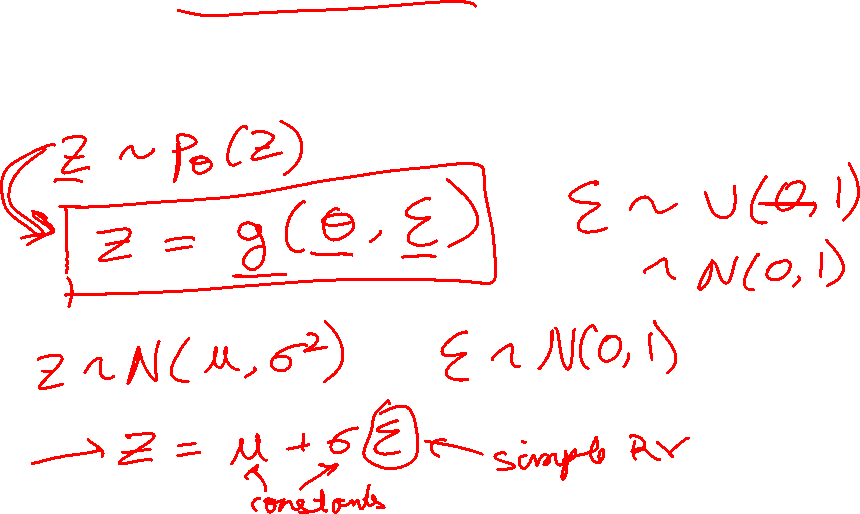 z ~ pθ(z)
z = g(θ, ε) ε ~ U(0,1)
~ N(0,1)
z ~ N(μ, σ²) ε ~ N(0,1)
→ z = μ + σ ε ← simple RV
constants